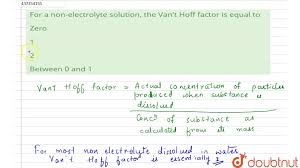 For a non-electrolyte solution, the Van't Hoff factor is equal to
Zero
1
2
Between 0 and 1
Van't Hoff factor = Actual concentration of particles
produced when substance is
dissolved
Concⁿ of substance as
calculated from its mass
For most non electrolyte dissolved in water
Van't Hoff factor is essentially
doubtnut